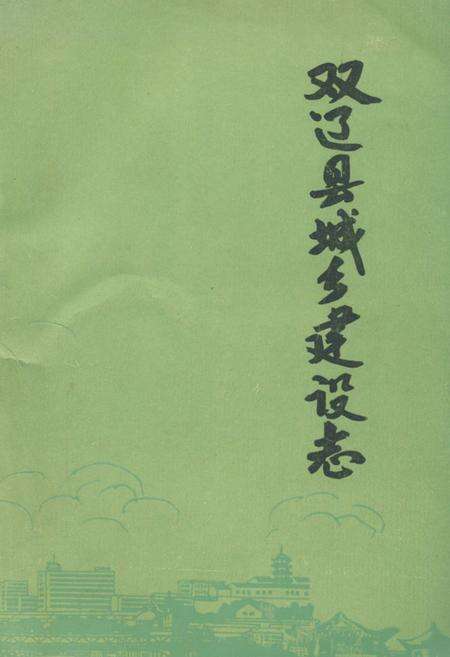 双辽县城乡建设志